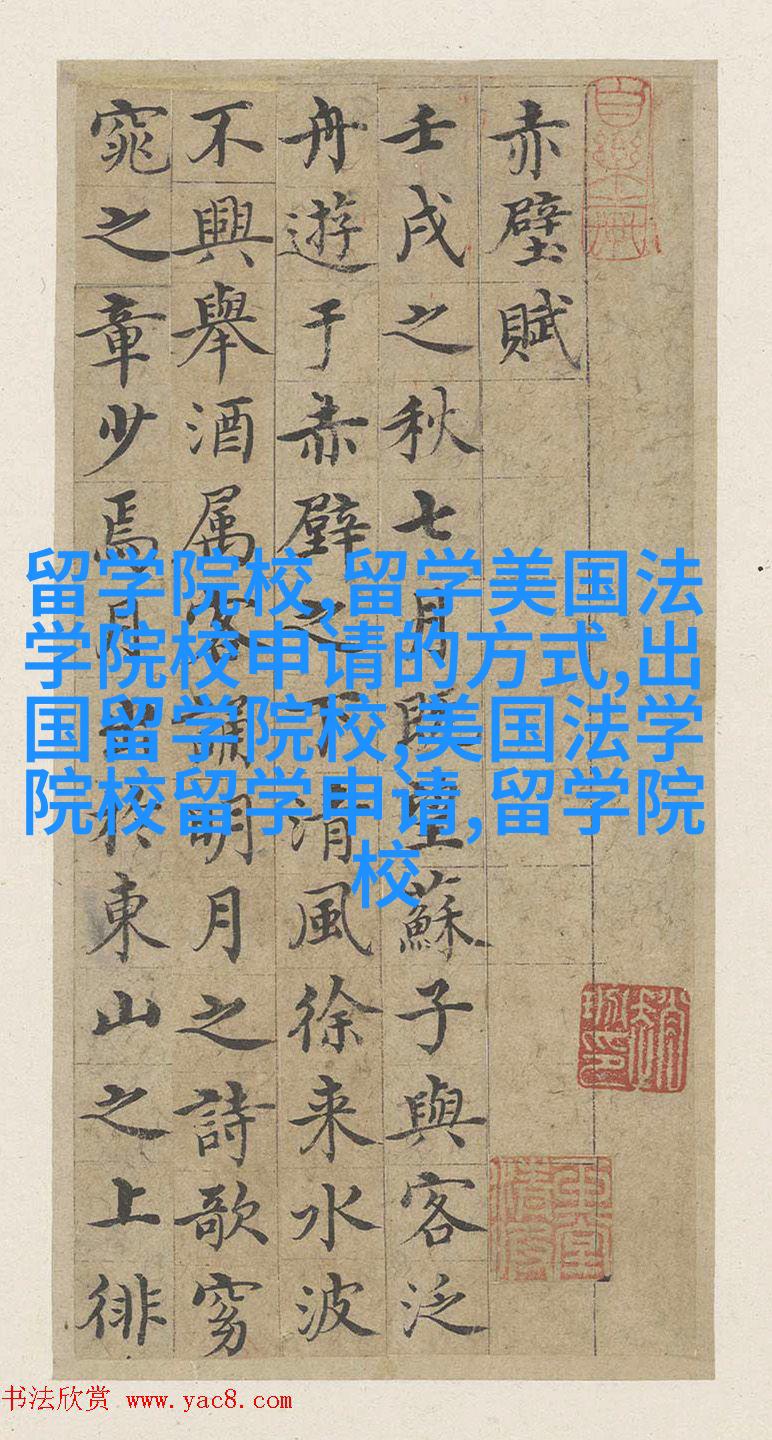 赤壁賦
壬戌之秋七月既望蘇子與客泛
舟遊于赤壁之下清風徐来水波
不興舉酒属客誦明月之詩歌窈
窕之章少焉月出於東山之上徘
留学院校,留学美国法
学院校申请的方式,出
国留学院校,美国法学
院校留学申请,留学院
校
书法欣赏 www.yac8.com